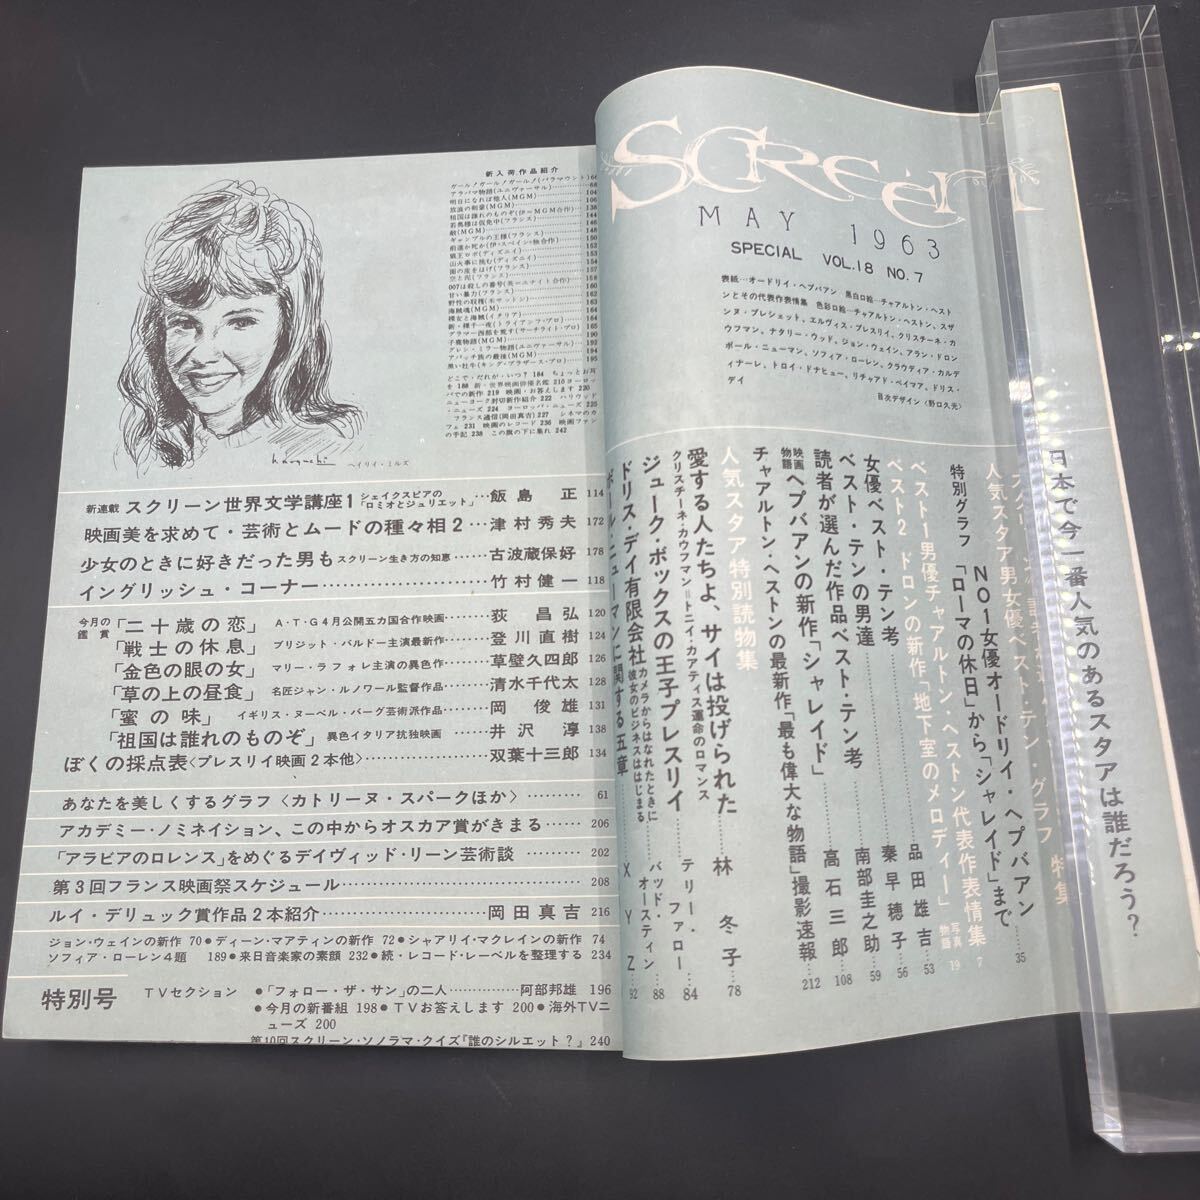 SCREEN
MAY 1963
SPECIAL VOL.18 NO.7
表紙…オードリイ・ヘプバアン 黒白口絵…チャアルトン・ヘスト
ンとその代表作表情集 色彩口絵…チャアルトン・ヘストン、スザ
ンヌ・プレシェット、エルヴィス・プレスリイ、クリスチーネ・カ
ウフマン、ナタリー・ウッド、ジョン・ウェイン、アラン・ドロン
ポール・ニューマン、ソフィア・ローレン、クラウディア・カルデ
ィナーレ、トロイ・ドナヒュー、リチャアド・ベイマア、ドリス・
デイ
目次デザイン〈野口久光〉
日本で今一番人気のあるスタアは誰だろう？
人気スタア男女優ベスト・テン・グラフ特集
特別グラフ NO1女優オードリイ・ヘプバアン
「ローマの休日」から「シャレイド」まで……35
ベスト1男優チャアルトン・ヘストン代表作表情集 7
ベスト2 ドロンの新作「地下室のメロディー」写真物語 19
女優ベスト・テン考……品田雄吉 53
ベスト・テンの男達……秦早穂子 56
読者が選んだ作品ベスト・テン考……南部圭之助 59
映画物語 ヘプバアンの新作「シャレイド」……高石三郎 108
チャアルトン・ヘストンの最新作「最も偉大な物語」撮影速報 212
人気スタア特別読物集
愛する人たちよ、サイは投げられた……林冬子 78
クリスチーネ・カウフマン＝トニイ・カアティス運命のロマンス
ジューク・ボックスの王子プレスリイ……テリー・ファロー 84
ドリス・デイ有限会社 カメラからはなれたときに彼女のビジネスははじまる バッド・オースティン 88
ポール・ニューマンに関する五章……XYZ 92
新入荷作品紹介
ガールノガールノガールノ(パラマウント) 66
アラバマ物語(ユニヴァーサル)
明日になれば他人(MGM)
放浪の剣豪(MGM)
祖国は誰れのものぞ(伊＝MGM合作)
若奥様は仮免中(フランス)
敵(MGM)
ギャンブルの王様(フランス)
前進か死か(伊・スペイン・独合作)
狼王ロボ(ディズニイ)
山火事に挑む(ディズニイ)
面の皮をはげ(フランス)
空と泥(フランス)
007は殺しの番号(英＝ユナイト合作)
甘い暴力(フランス)
野性の収穫(モサットン)
海賊魂(MGM)
裸女と海賊(イタリア)
新・裸千一夜(トライアンフ・プロ)
グラマー西部を荒す(サーチライト・プロ)
子鹿物語(MGM)
グレン・ミラー物語(ユニヴァーサル)
アパッチ族の最後(MGM)
黒い牡牛(キング・ブラザース・プロ)
どこで・だれが・いつ？ 184 ちょっとお耳
を 188 新・世界映画俳優名鑑 210 ヨーロッ
パでの新作 219 映画・お答えします 220
ニューヨーク封切新作紹介 222 ハリウッド
・ニューズ 224 ヨーロッパ・ニューズ 225
フランス通信(岡田真吉) 227 シネマのカ
フェ 231 映画のレコード 236 映画ファン
の手記 238 この旗の下に集れ 242
ヘイリイ・ミルズ
新連載 スクリーン世界文学講座1 シェイクスピアの「ロミオとジュリエット」…飯島 正 114
映画美を求めて・芸術とムードの種々相2…津村秀夫 172
少女のときに好きだった男も スクリーン生き方の知恵……古波蔵保好 178
イングリッシュ・コーナー……竹村健一 118
今月の鑑賞 「二十歳の恋」 A・T・G4月公開五カ国合作映画……荻 昌弘 120
「戦士の休息」 ブリジット・バルドー主演最新作……登川直樹 124
「金色の眼の女」 マリー・ラフォレ主演の異色作……草壁久四郎 126
「草の上の昼食」 名匠ジャン・ルノワール監督作品……清水千代太 128
「蜜の味」 イギリス・ヌーベル・バーグ芸術派作品……岡 俊雄 131
「祖国は誰れのものぞ」 異色イタリア抗独映画……井沢 淳 138
ぼくの採点表〈プレスリイ映画2本他〉……双葉十三郎 134
あなたを美しくするグラフ〈カトリーヌ・スパークほか〉……61
アカデミー・ノミネイション、この中からオスカア賞がきまる……206
「アラビアのロレンス」をめぐるデイヴィッド・リーン芸術談……202
第3回フランス映画祭スケジュール……208
ルイ・デリュック賞作品2本紹介……岡田真吉 216
ジョン・ウェインの新作 70●ディーン・マアティンの新作 72●シャアリイ・マクレインの新作 74
ソフィア・ローレン4題 189●来日音楽家の素顔 232●続・レコード・レーベルを整理する 234
特別号
TVセクション ●「フォロー・ザ・サン」の二人……阿部邦雄 196
●今月の新番組 198●TVお答えします 200●海外TVニ
ューズ 200
第10回スクリーン・ソノラマ・クイズ『誰のシルエット？』240